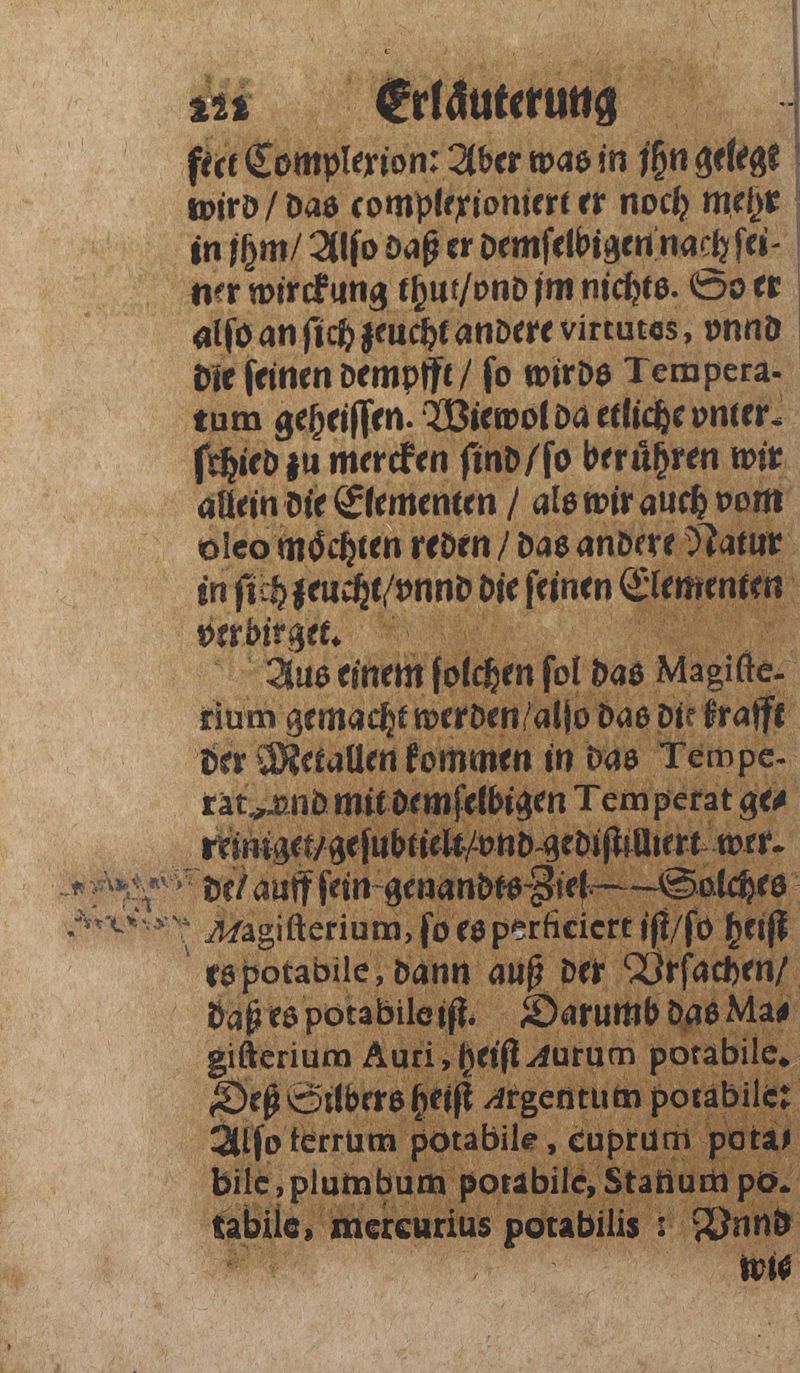 222 Erläuterung
fect Complexion: Aber was in jhn gelegt
wird / das complexioniert er noch mehr
in jhm/ Alſo daß er demſelbigen nach ſei-
ner wirckung thut/vnd jm nichts. So er
alſo an ſich zeucht andere virtutes, vnnd
die ſeinen dempfft / ſo wirds Tempera-
tum geheiſſen. Wiewol da etliche vnter-
ſchied zu mercken ſind / ſo berühren wir
allein die Elementen / als wir auch vom
oleo möchten reden / das andere Natur
in ſich zeucht/vnnd die ſeinen Elementen
verbirget.
Aus einem ſolchen ſol das Magiſte-
rium gemacht werden/alſo das die krafft
der Metallen kommen in das Tempe-
rat, vnd mit demſelbigen Temperat ge-
reiniget/geſubtielt/vnd gediſtilliert wer-
de/ auff ſein genandts Ziel — — Solches
Magiſterium, ſo es perficiert iſt/ſo heiſt
es potabile, dann auß der Vrſachen/
daß es potabile iſt. Darumb das Ma-
giſterium Auri, heiſt Aurum potabile.
Deß Silbers heiſt Argentum potabile:
Alſo ferrum potabile, cuprum pota-
bile, plumbum potabile, Stanum po-
tabile, mercurius potabilis : Vnnd
wie